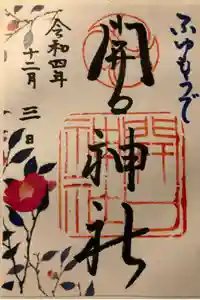 ふゆもうで
開口神社
令和四年
十二月三日